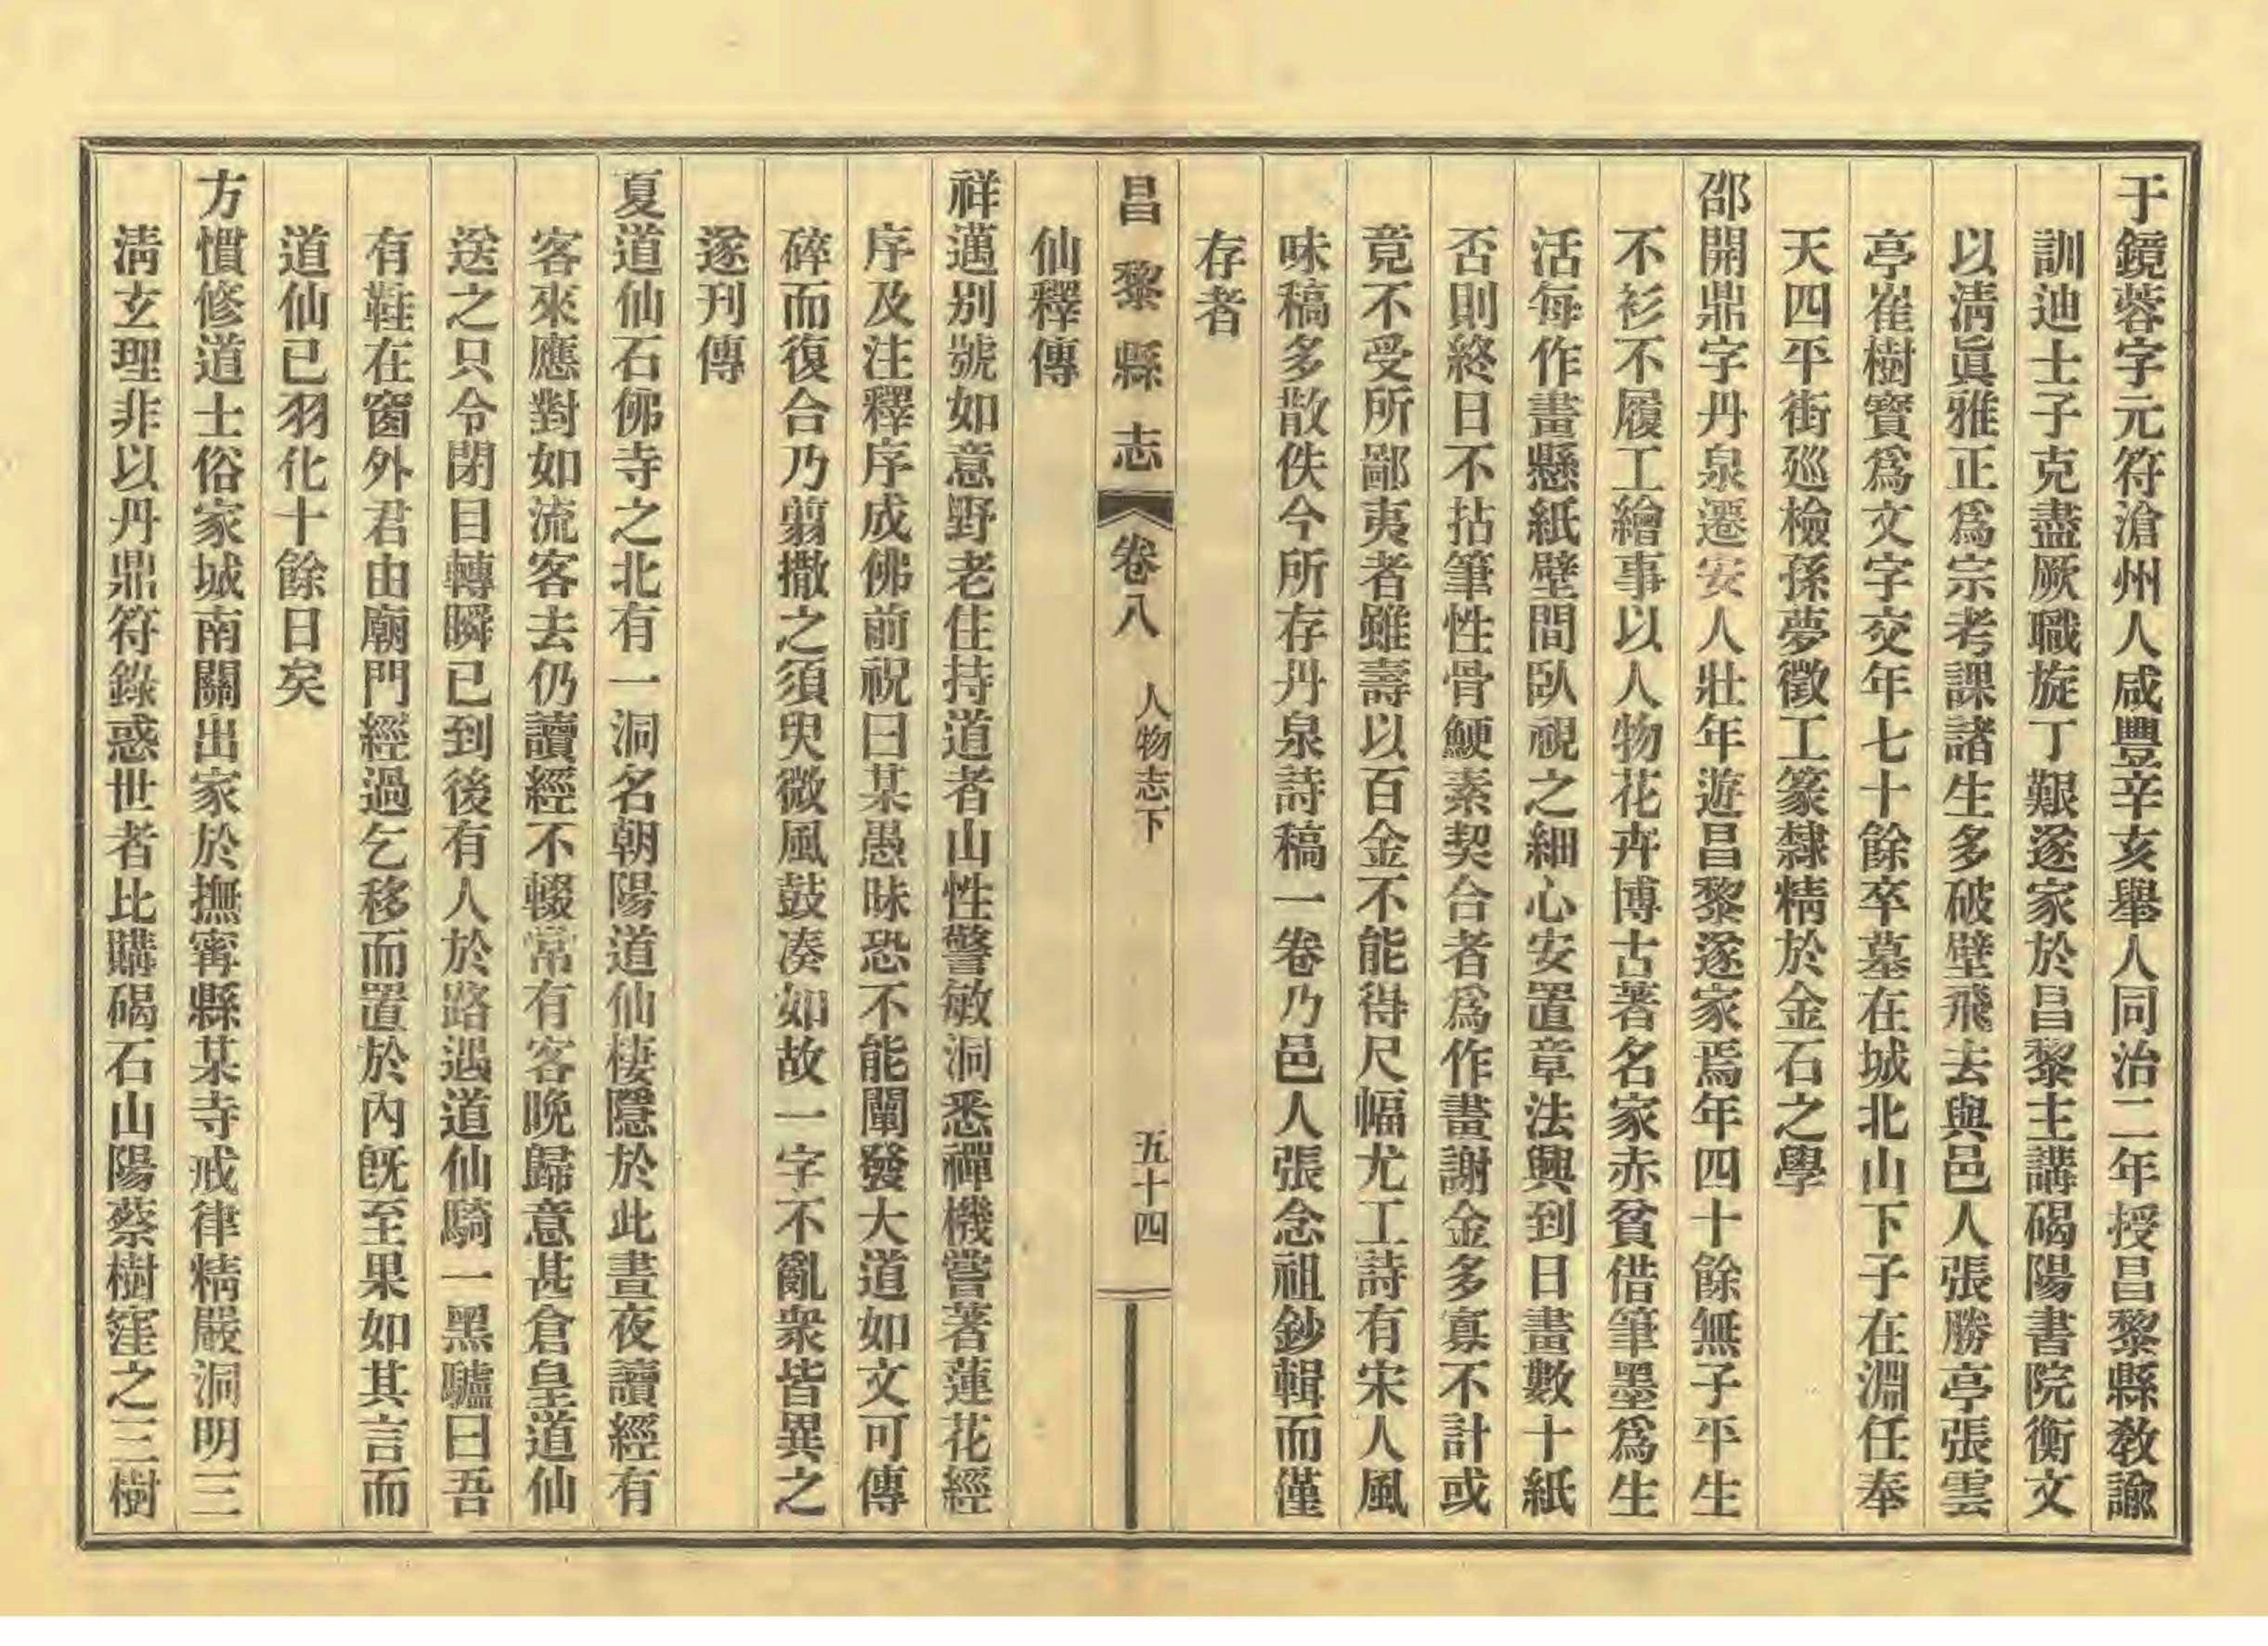 于鏡蓉字元符滄州人咸豐辛亥舉人同治二年授昌黎縣教諭
訓迪士子克盡厥職旋丁艱遂家於昌黎主講碣陽書院衡文
以淸眞雅正爲宗考課諸生多破壁飛去與邑人張勝亭張雲
亭崔樹寶爲文字交年七十餘卒墓在城北山下子在淵任奉
天四平街廵檢孫夢徵工篆隸精於金石之學
邵開鼎字丹泉遷安人壯年遊昌黎遂家焉年四十餘無子平生
不衫不履工繪事以人物花卉博古著名家赤貧借筆墨爲生
活每作畫懸紙壁間臥視之細心安置章法興到日畫數十紙
否則終日不拈筆性骨鯁素契合者爲作畫謝金多寡不計或
竟不受所鄙夷者雖壽以百金不能得尺幅尤工詩有宋人風
味稿多散佚今所存丹泉詩稿一卷乃邑人張念祖鈔輯而僅
存者
昌黎縣志 卷八 人物志下 五十四
仙釋傳
祥邁别號如意野老住持道者山性警敏洞悉禪機嘗著蓮花經
序及注釋序成佛前祝曰某愚昧恐不能闡發大道如文可傳
碎而復合乃翦撒之須臾微風鼓凑如故一字不亂衆皆異之
遂刊傳
夏道仙石佛寺之北有一洞名朝陽道仙棲隱於此晝夜讀經有
客來應對如流客去仍讀經不輟常有客晩歸意甚倉皇道仙
送之只令閉目轉瞬已到後有人於路遇道仙騎一黑驢曰吾
有鞋在窗外君由廟門經過乞移而置於內旣至果如其言而
道仙已羽化十餘日矣
方慣修道士俗家城南關出家於撫寗縣某寺戒律精嚴洞明三
淸玄理非以丹鼎符錄惑世者比購碣石山陽蔡樹窪之三樹